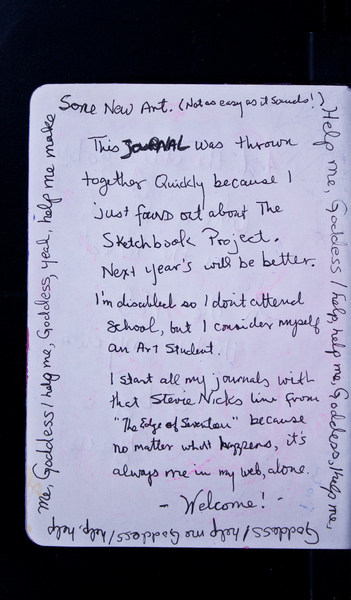 Some New Art. (Not as easy as it sounds!)
This JOURNAL was thrown
together Quickly because I
just found out about The
Sketchbook Project.
Next year's will be better.
I'm disabled so I don't attend
school, but I consider myself
an Art Student.
I start all my journals with
that Stevie Nicks line from
"The Edge of Seventeen" because
no matter what happens, it's
always me in my web, alone.
- Welcome! -
Help me, Goddess / help, help me, Goddess, Help me,
Goddess / help me Goddess / help, help
me, Goddess / help me, Goddess, yeah, help me make